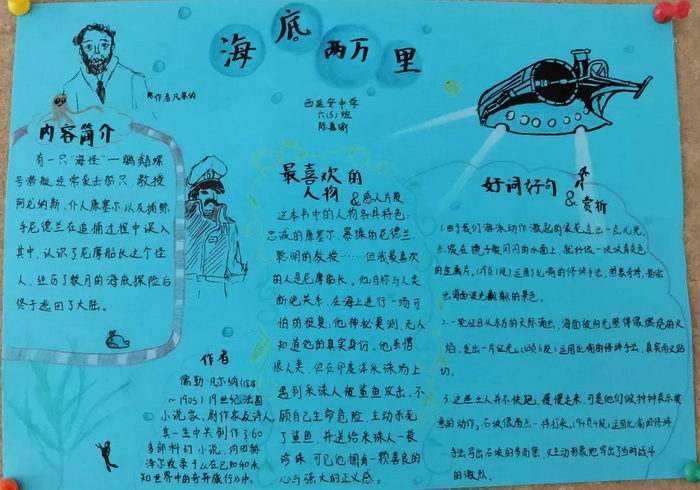 海底两万里
西延安中学
六(5)班
陈嘉瑜
内容简介
有一只“海怪”—鹦鹉螺
号潜艇经常袭击船只,教授
阿龙纳斯、仆人康塞尔以及捕鲸
手尼德兰在追捕过程中误入
其中,认识了尼摩船长这个怪
人,经历了数月的海底探险后
终于逃回了大陆。
作者
儒勒·凡尔纳(1828
~1905)19世纪法国
小说家、剧作家及诗人
其一生中共创作了60
多部科幻小说,
在已知和未
知世界中的奇异旅行》中。
最喜欢的
人物
&感人片段
这本书中的人物各具特色:
忠诚的康塞尔、暴躁的尼德兰、
聪明的教授……但我最喜欢
的人是尼摩船长。他自称与人类
断绝关系,在海上进行一场可
怕的报复;他神秘莫测,无人
知道他的真实身份。他虽憎
恨人类,但在印度洋采珠场上
遇到采珠人被鲨鱼攻击,不
顾自己生命危险,主动杀死
了鲨鱼,并送给采珠人一袋
珍珠,可见他拥有一颗善良的
心与强大的正义感。
好词好句
&赏析
1.由于我们海泳动作激起的浪花透出一点儿光
点,聚在
的金属片。运用比喻的修辞手法,
出海面波光粼粼的景色。
2.一轮红日从东方的天际涌出,海面被阳光照得像燃烧的火
焰,发出一片红光。运用比喻的修辞手法,真实而又贴
切。
3.这些土人并不快跑,慢慢走来,可是他们做种种表示敌
意的动作。石块像雨点一样打来。(94页4段)运用比喻的修辞
手法写出石块的多而密,又生动形象地写出了当时战斗
的激烈。